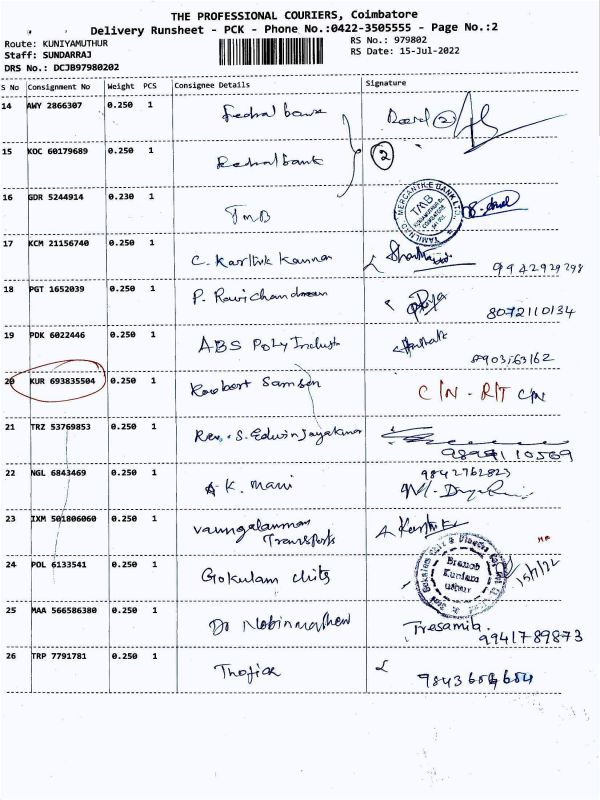 THE PROFESSIONAL COURIERS, Coimbatore
Delivery Runsheet - PCK - Phone No.:0422-3505555 - Page No.:2
Route: KUNIYAMUTHUR
RS No.: 979802
Staff: SUNDARRAJ
RS Date: 15-Jul-2022
DRS No.: DCJB97980202
S No Consignment No Weight PCS Consignee Details Signature
14 AWY 2866307 0.250 1 Fedral bank
15 KOC 60179689 0.250 1 Fedral bank 2
16 GDR 5244914 0.230 1 TMB
TAMILNAD MERCANTILE BANK LTD.
TMB
17 KCM 21156740 0.250 1 C. Karthik Kannan
9942929298
18 PGT 1652039 0.250 1 P. Ravichandran
8072110134
19 PDK 6022446 0.250 1 ABS Poly Industr
8903763162
20 KUR 693835504 0.250 1 Roobert Samson C/N - R/T C/N
21 TRZ 53769853 0.250 1 Rev. S. Edwin Jayakumar
9894110569
22 NGL 6843469 0.250 1 A K. Mani
9842762823
23 IXM 501806060 0.250 1 Transports A. Karthik
24 POL 6133541 0.250 1 Gokulam chits
Branch
Kuniam
uthur
15/7/22
25 MAA 566586380 0.250 1 Dr Nobin mathew
9941789873
26 TRP 7791781 0.250 1 Thofick
9843684684